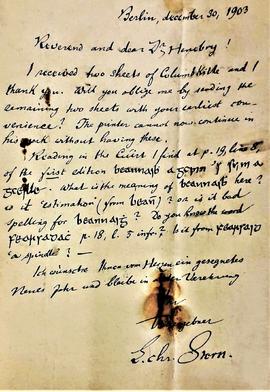 Berlin, december 30, 1903
Reverend and dear Dr Henebry!
I received two sheets of Columbkille and I
thank you. Will you oblige me by sending the
remaining two sheets with your earliest con-
venience? The printer cannot now continue in
his work without having these.
Reading in the Cúirt I find at p. 19, line 5,
of the first edition
What is the meaning of beannaıḋ here?
is it 'estimation' (from bean)? or is it bad
spelling for beannaıġ? Do you know the word
p. 18, l. 5 infr.? is it from
'a spindle'? —
Ich wünsche Ihnen von Herzen ein gesegnetes
Neues Jahr und bleibe in Verehrung
Ihr
ergebner
L. Chr. Stern.